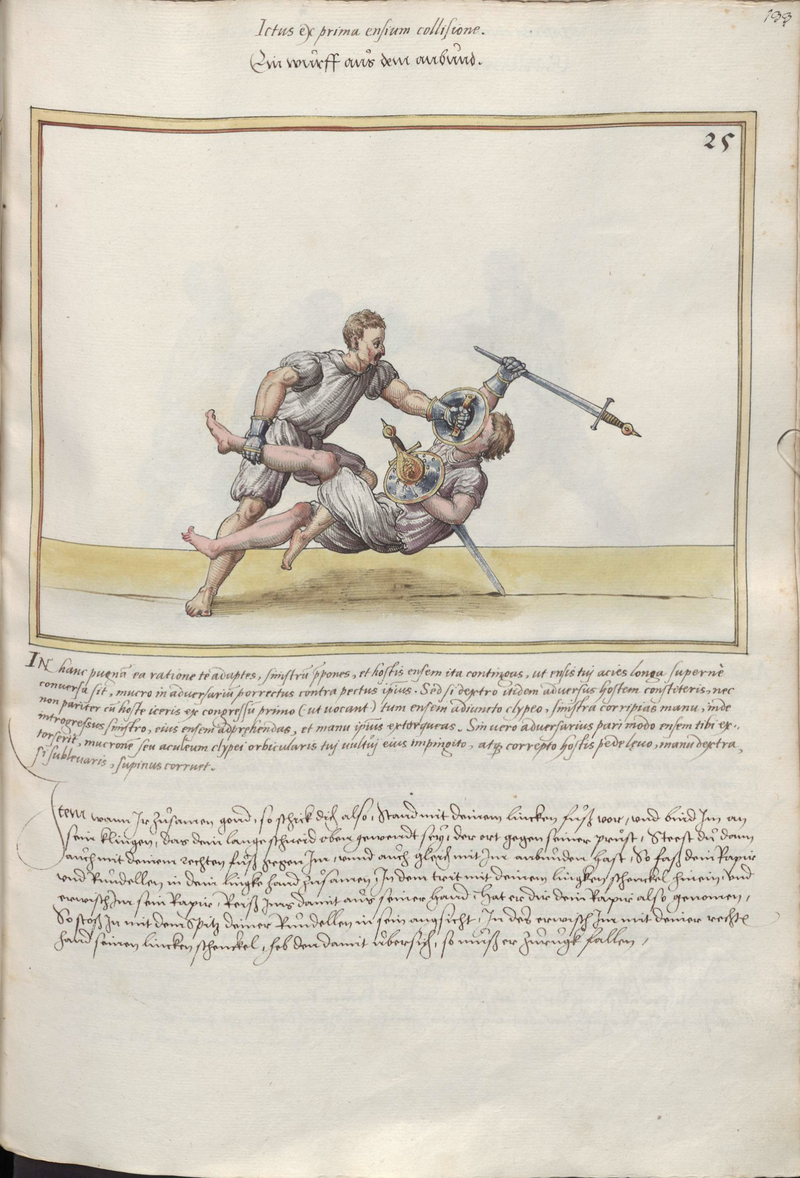 133
Ictus ex prima ensium collisione.
Ein wurff aus dem anbund.
25
IN hanc pugnã ea ratione te adaptes, sinistrũ p̃pones, et hostis ensem ita contingas, ut ensis tuj acies longa supernè
conuersa sit, mucro in aduersariũ porrectus contra pectus ipius. Sed si dextro itidem aduersus hostem constiteris, nec
non pariter cũ hoste iceris ex congressu primo (ut vocant) tum ensem adiuncto clypeo, sinistra corripias manu, inde
introgressus sinistro, eius ensem adprehendas, et manu ipsius extorqueas. Sin uero aduersarius pari modo ensem tibi ex-
torserit, mucronẽ seu aculeum clypei orbicularis tuj uultuj eius impingito, atq; correpto hostis pede lęuo, manu dextra,
si subleuaris, supinus corruet.
Item wann Ir zusamen gond, so schick dich also, Stand mit deinem lincken fuß vor, vnd bind Im an
sein klingen, das dein lange schneid oben gewendt sey, der ort gegen seiner prust, Steest du dann
auch mit deinem rechten fuß gegen Im, vnnd auch gleich mit Im anbunden hast, So faß dein Rapir
vnd Rundellen in dein lingke hand zusamen, In dem trit mit deinem lingken schenckel hinein, vnd
erwisch Im sein Rapir, Reiß Ims damit aus seiner hand, Hat er dir dein Rapir also genomen,
So stoß In mit dem Spitz deiner Rundellen in sein angsicht, In des erwisch Im mit deiner rechtẽ
hand seinen lincken schenckel, heb den damit übersich, so muß er zurugk fallen,